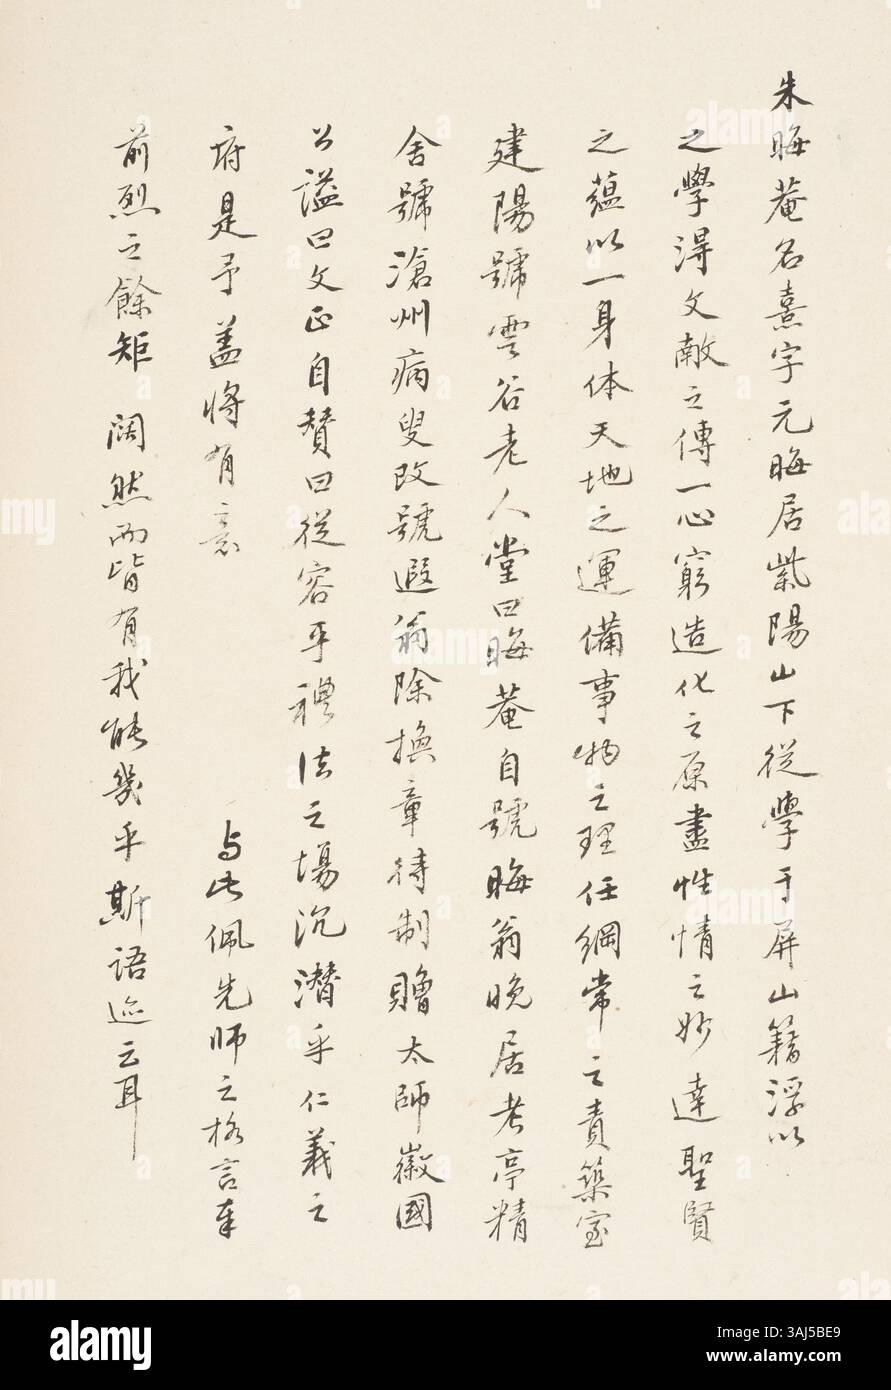 朱晦菴名熹字元晦居紫陽山下從學于屏山籍浮以
之學淂文敵之傳一心窮造化之原盡性情之妙達聖賢
之蘊以一身体天地之運備事物之理任綱常之責築室
建陽號雲谷老人堂曰晦菴自號晦翁晚居考亭精
舍號滄州病叟改號遐翁除換章待制贈太師徽國
公謚曰文正自賛曰從容乎禮法之場沉潛乎仁義之
府是予盖將有意
与此佩先師之格言奉
前烈之餘矩 闊然而皆有我能幾乎斯語迩云耳
alamy
Image ID: 3AJ5BE9
www.alamy.com